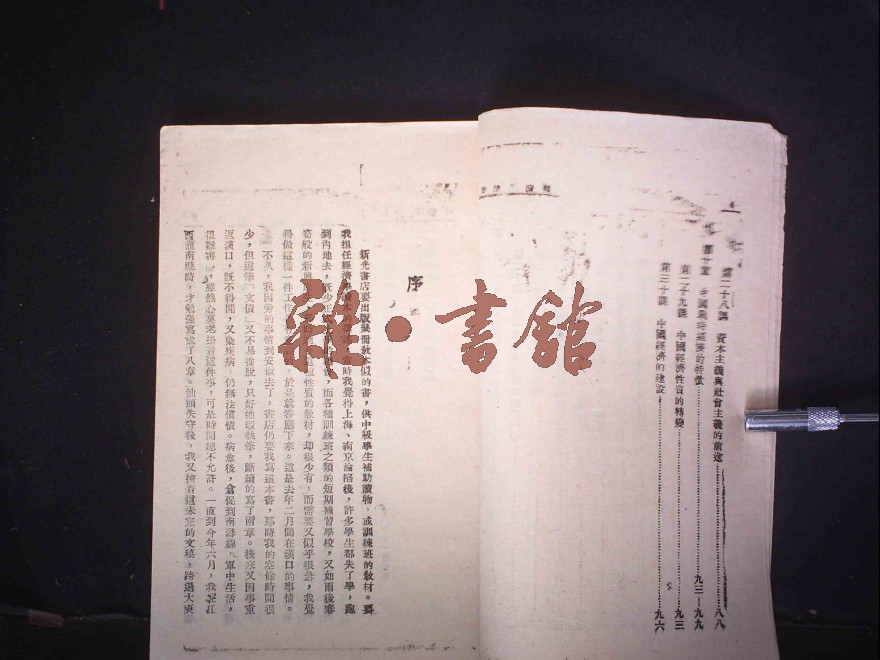 第二十八課 資本主義與社會主義的前途 八八
第十章 中國戰時經濟的特徵 九三—九九
第二十九課 中國經濟性質的轉變 九三
第三十課 中國經濟的建設 九六
序
新光書店要出版幾冊教本似的書,供中級學生補助讀物,或訓練班的教材。要
我担任經濟 時我覺得上海、南京淪陷後,許多學生都失了學,跑
到內地去,既少正 而各種訓練班之類的短期補習學校,又如雨後春
筍般的新興 性質的教材,却很少有,而需要又似乎很急,我覺
得做這樣一件工作 於是就答應下來。這是去年二月間在漢口的事情。
不久,我因旁的事情到安徽去了,書店仍要我寫這本書,那時我的空餘時間很
少,但這筆「文債」又不易推脫,只好抽暇執筆,斷續的寫了兩章。後來又因事重
返漢口,既不得閒,又染疾病,仍無法償債。病愈後,倉促到南潯線,軍中生活,
很難寫 ,雖然心裏老掛着這件事,可是時間總不允許。一直到今年六月,我 江
西 南縣時,才勉強寫成了八章。 失守後,我又擠着這未完的文稿,跨過大庾
雜·書館